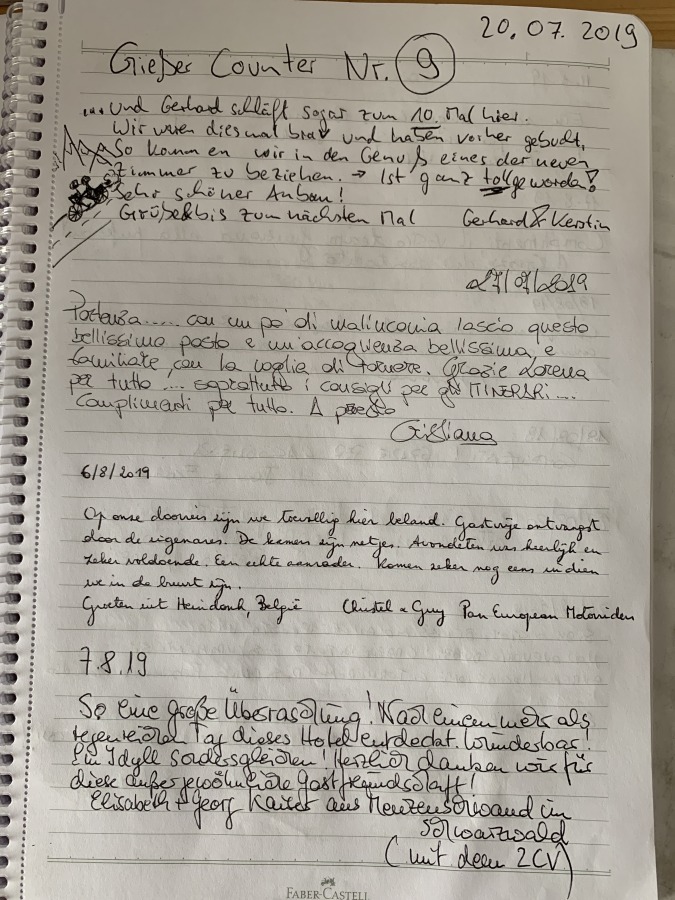 20.07.2019
Gießer Counter Nr. 9
... und Gerhard schläft sogar zum 10. Mal hier.
Wir waren diesmal brav und haben vorher gebucht,
So kommen wir in den Genuß eines der neuen
Zimmer zu beziehen. → Ist ganz toll geworden!
Sehr schöner Anbau!
Grüße & bis zum nächsten Mal Gerhard & Kerstin
27/07/2019
Partenza..... con un po' di malinconia lascio questo
bellissimo posto e un'accoglienza bellissima, e
familiare, con la voglia di tornare. Grazie Lorena
per tutto .... soprattutto i consigli per gli ITINERARI....
Complimenti per tutto. A presto
Cristiana
6/8/2019
Op onze doorreis zijn we toevallig hier beland. Gastvrije ontvangst
door de eigenares. De kamers zijn netjes. Avondeten was heerlijk en
zeker voldoende. Een echte aanrader. Komen zeker nog eens indien
we in de buurt zijn.
Groeten uit Heindonk, België Christel & Guy Pan European Motorriders
7.8.19
So eine große Überraschung! Nach einem mehr als
regenreichen Tag dieses Hotel entdeckt. Wunderbar!
Ein Idyll sondergleichen! Herzlich danken wir für
diese außergewöhnliche Gastfreundschaft!
Elisabeth + Georg Kaiser aus Menzenschwand im
Schwarzwald
(mit dem 2CV)
FABER-CASTELL